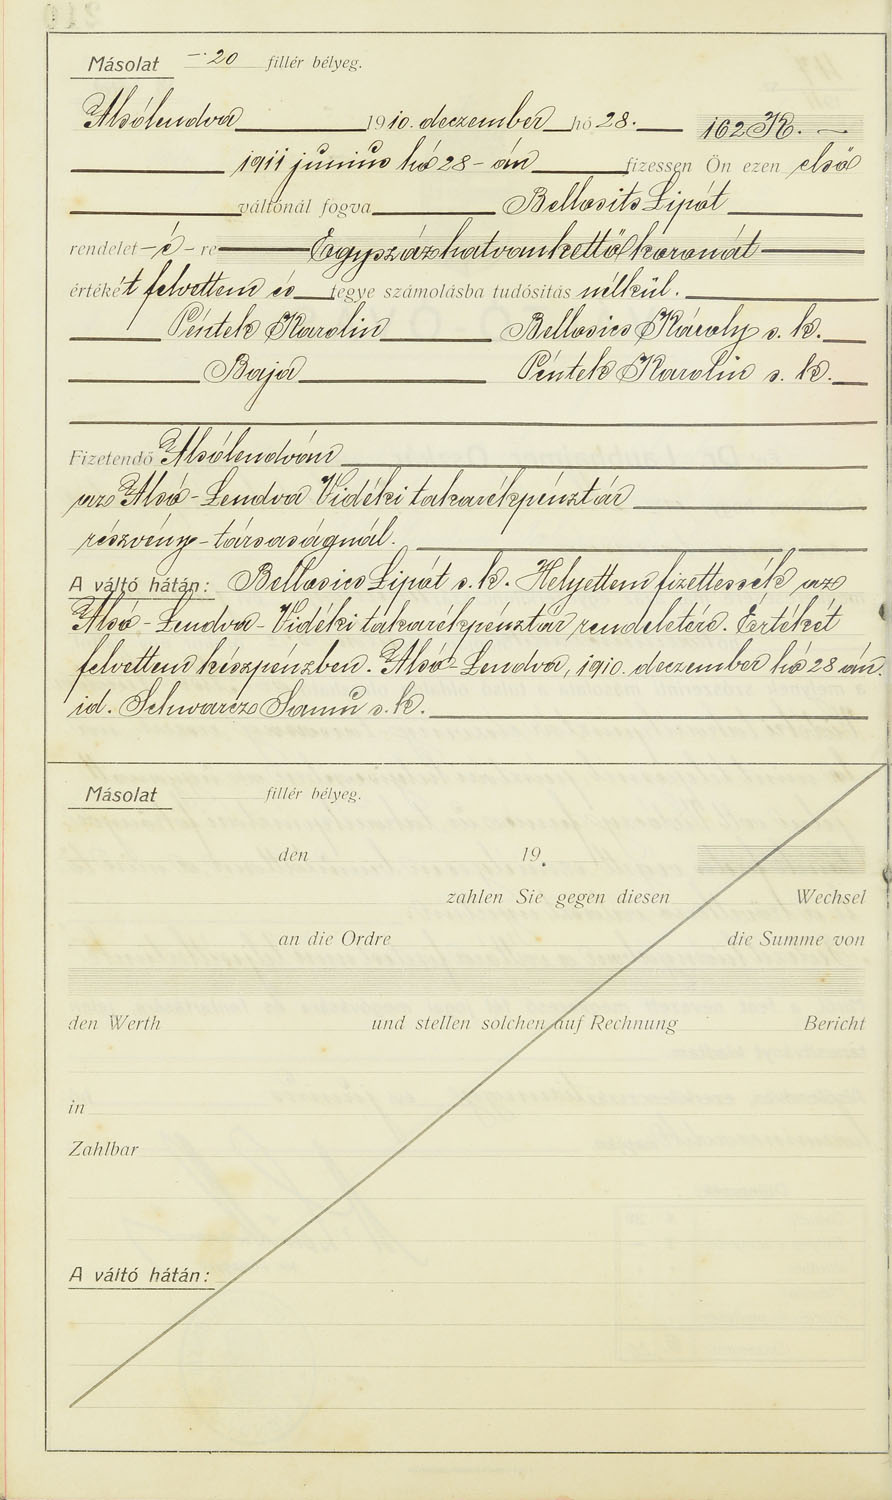 Másolat -·20 fillér bélyeg.
Alsólendva 1910. deczember hó 28. 162 K. —
1911 junius hó 28-án fizessen Ön ezen első
váltónál fogva Bellosits Lipót
rendelet -é- re Egyszázhatvankettő koronát
értékét felvettem és tegye számolásba tudósítás nélkül.
Péntek Karolin Bellosics Károly s. k.
Baja Péntek Karolin s. k.
Fizetendő Alsólendván
az Alsó-Lendva Vidéki takarékpénztár
részvény-társaságnál.
A váltó hátán: Bellosics Lipót s. k. Helyettem fizettessék az
Alsó-Lendva-Vidéki takarékpénztár rendeletére. Értékét
felvettem készpénzben. Alsó-Lendva, 1910. deczember hó 28 án.
id. Schwarcz Samu s. k.
Másolat fillér bélyeg.
den 19.
zahlen Sie gegen diesen Wechsel
an die Ordre die Summe von
den Werth und stellen solchen auf Rechnung Bericht
in
Zahlbar
A váltó hátán: